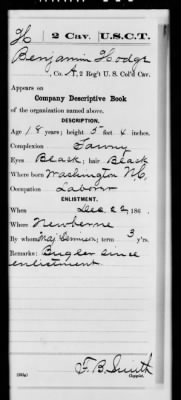 H 2 Cav. U.S.C.T.
Benjamin Hodge
, Co. A, 2 Reg't U. S. Col'd Cav.
Appears on
Company Descriptive Book
of the organization named above.
DESCRIPTION.
Age 18 years; height 5 feet 4 inches.
Complexion Tawny
Eyes Black; hair Black
Where born Washington N.C.
Occupation Laborer
ENLISTMENT.
When Dec 22, 186 .
Where Newberne
By whom Maj. ; term 3 y'rs.
Remarks: Bugler since
enlistment
F. B. Smith
Copyist.